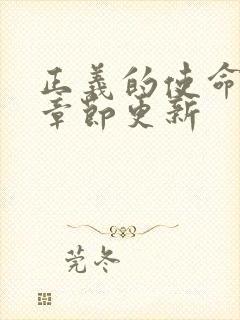 正義的使命
章節更新
莞冬